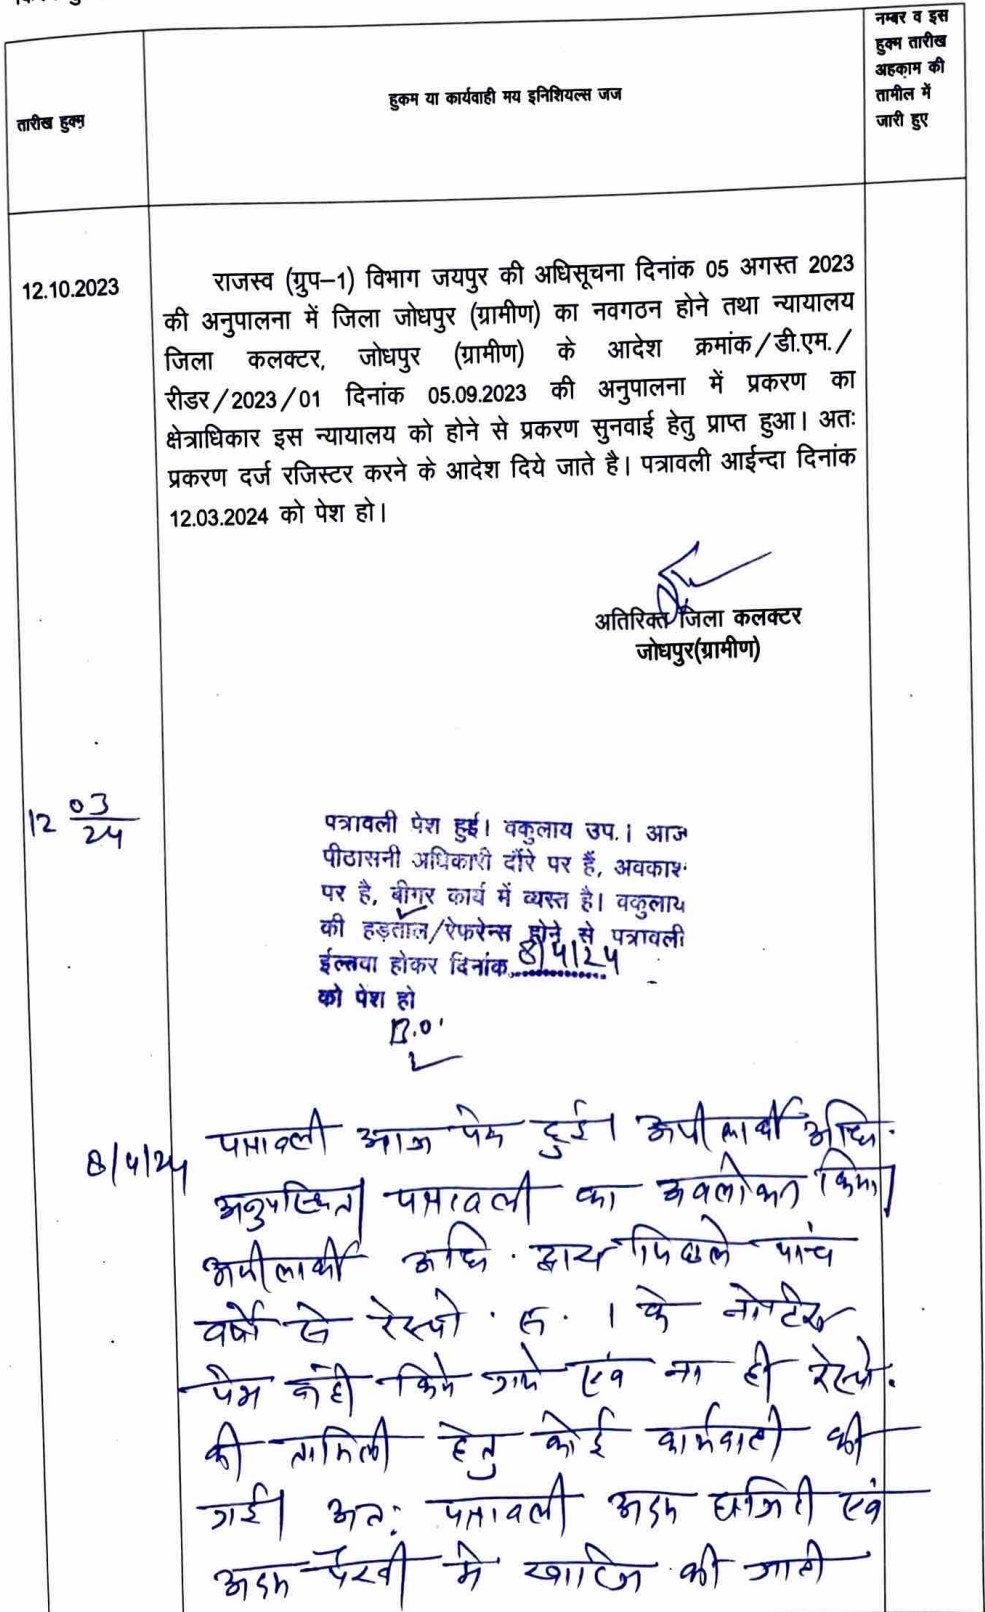 नम्बर व इस
हुक्म तारीख
अहकाम की
तामील में
जारी हुए
हुकम या कार्यवाही मय इनिशियल्स जज
तारीख हुक्म
12.10.2023
राजस्व (ग्रुप–1) विभाग जयपुर की अधिसूचना दिनांक 05 अगस्त 2023
की अनुपालना में जिला जोधपुर (ग्रामीण) का नवगठन होने तथा न्यायालय
जिला कलक्टर, जोधपुर (ग्रामीण) के आदेश क्रमांक/डी.एम./
रीडर/2023/01 दिनांक 05.09.2023 की अनुपालना में प्रकरण का
क्षेत्राधिकार इस न्यायालय को होने से प्रकरण सुनवाई हेतु प्राप्त हुआ। अतः
प्रकरण दर्ज रजिस्टर करने के आदेश दिये जाते है। पत्रावली आईन्दा दिनांक
12.03.2024 को पेश हो।
अतिरिक्त जिला कलक्टर
जोधपुर(ग्रामीण)
12 03/24
पत्रावली पेश हुई। वकुलाय उप.। आज
पीठासनी अधिकारी दौरे पर हैं, अवकाश
पर है, बीगर कार्य में व्यस्त है। वकुलाय
की हड़ताल/ऐफरेन्स होने से पत्रावली
ईल्तवा होकर दिनांक 8/4/24
को पेश हो
B.O.
8/4/24
पत्रावली आज पेश हुई। अपीलार्थी अधि.
अनुपस्थित। पत्रावली का अवलोकन किया।
अपीलार्थी अधि. द्वारा पिछले पांच
वर्षो से रेस्पो. सं. 1 के नोटिस
पेश नही किये गये एवं ना ही रेस्पो.
की तामिली हेतु कोई कार्यवाही की
गई। अतः पत्रावली अदम हाजिरी एवं
अदम पैरवी मे खारिज की जाती